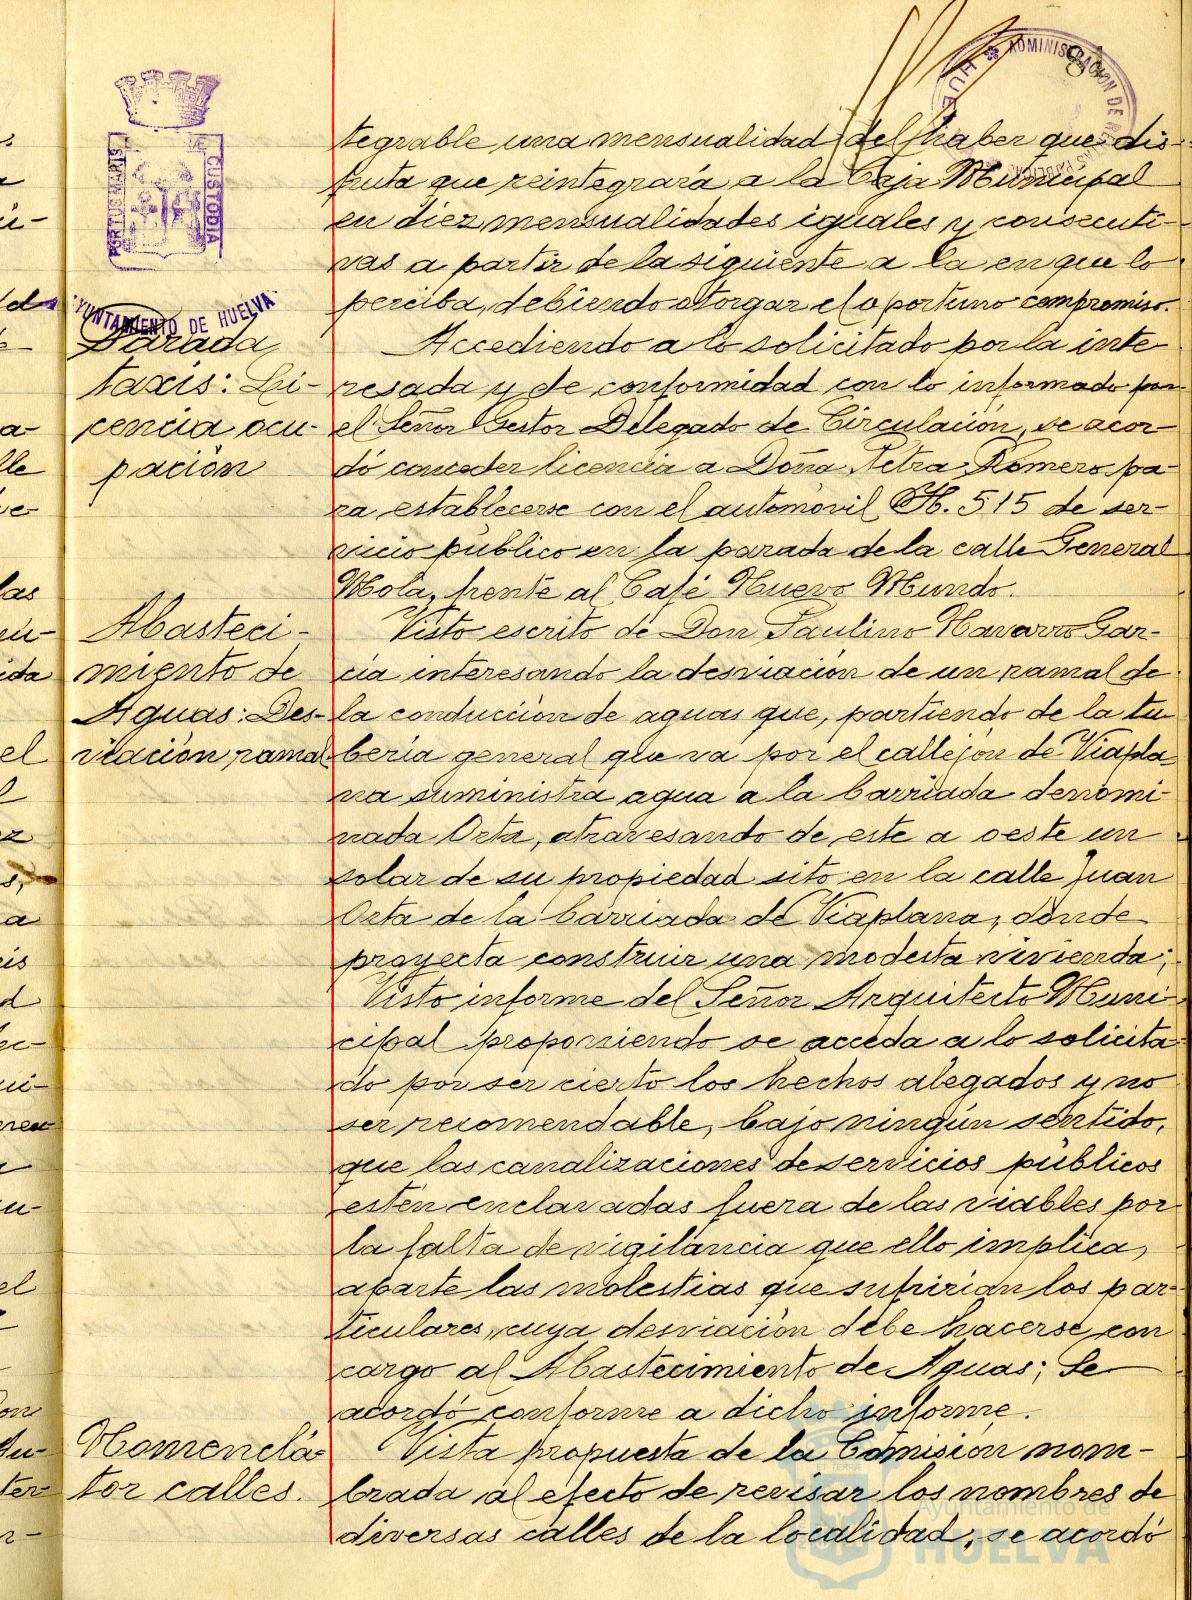 ADMINISTRACION DE
HUE
84
PORTUS MARIS
CUSTODIA
AYUNTAMIENTO DE HUELVA
tegrable una mensualidad del haber que dis-
fruta que reintegrará a la Caja Municipal
en diez mensualidades iguales y consecuti-
vas a partir de la siguiente a la en que lo
perciba, debiendo otorgar el oportuno compromiso.
Parada
taxis: Li-
cencia ocu-
pación
Accediendo a lo solicitado por la inte-
resada y de conformidad con lo informado por
el Señor Gestor Delegado de Circulación, se acor-
dó conceder licencia a Doña Petra Romero pa-
ra establecerse con el automóvil H. 515 de ser-
vicio público en la parada de la calle General
Mola, frente al Café Nuevo Mundo.
Abasteci-
miento de
Aguas: Des-
viación ramal
Visto escrito de Don Paulino Navarro Gar-
cía interesando la desviación de un ramal de
la conducción de aguas que, partiendo de la tu-
bería general que va por el callejón de Viapla-
na suministra agua a la barriada denomi-
nada Orta, atravesando de este a oeste un
solar de su propiedad sito en la calle Juan
Orta de la barriada de Viaplana, donde
proyecta construir una modesta vivienda;
Visto informe del Señor Arquitecto Muni-
cipal proponiendo se acceda a lo solicita-
do por ser cierto los hechos alegados y no
ser recomendable, bajo ningún sentido,
que las canalizaciones de servicios públicos
estén enclavadas fuera de las viables por
la falta de vigilancia que ello implica,
aparte las molestias que sufrirían los par-
ticulares, cuya desviación debe hacerse con
cargo al Abastecimiento de Aguas; Se
acordó conforme a dicho informe.
Nomenclá-
tor calles.
Vista propuesta de la Comisión nom-
brada al efecto de revisar los nombres de
diversas calles de la localidad, se acordó
Ayuntamiento de
HUELVA